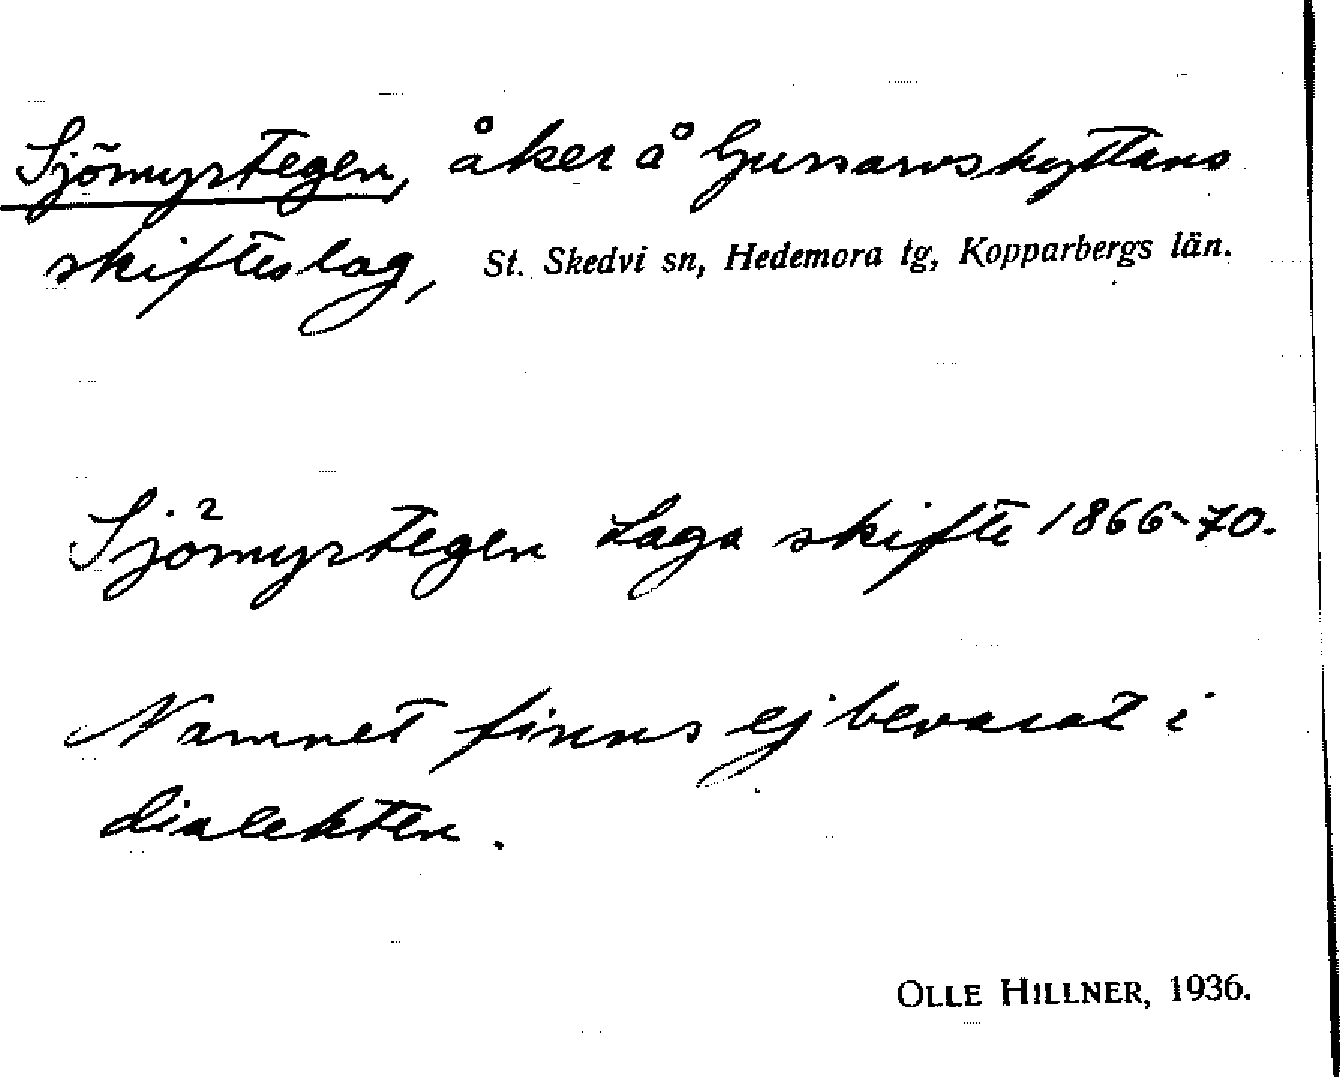 Sjömyrtegen, åker å Gussarvshyttans
skifteslag, St. Skedvi sn, Hedemora tg, Kopparbergs län.
Sjömyrtegen Laga skifte 1866-70.
Namnet finns ej bevarat i
dialekten.
OLLE HILLNER, 1936.